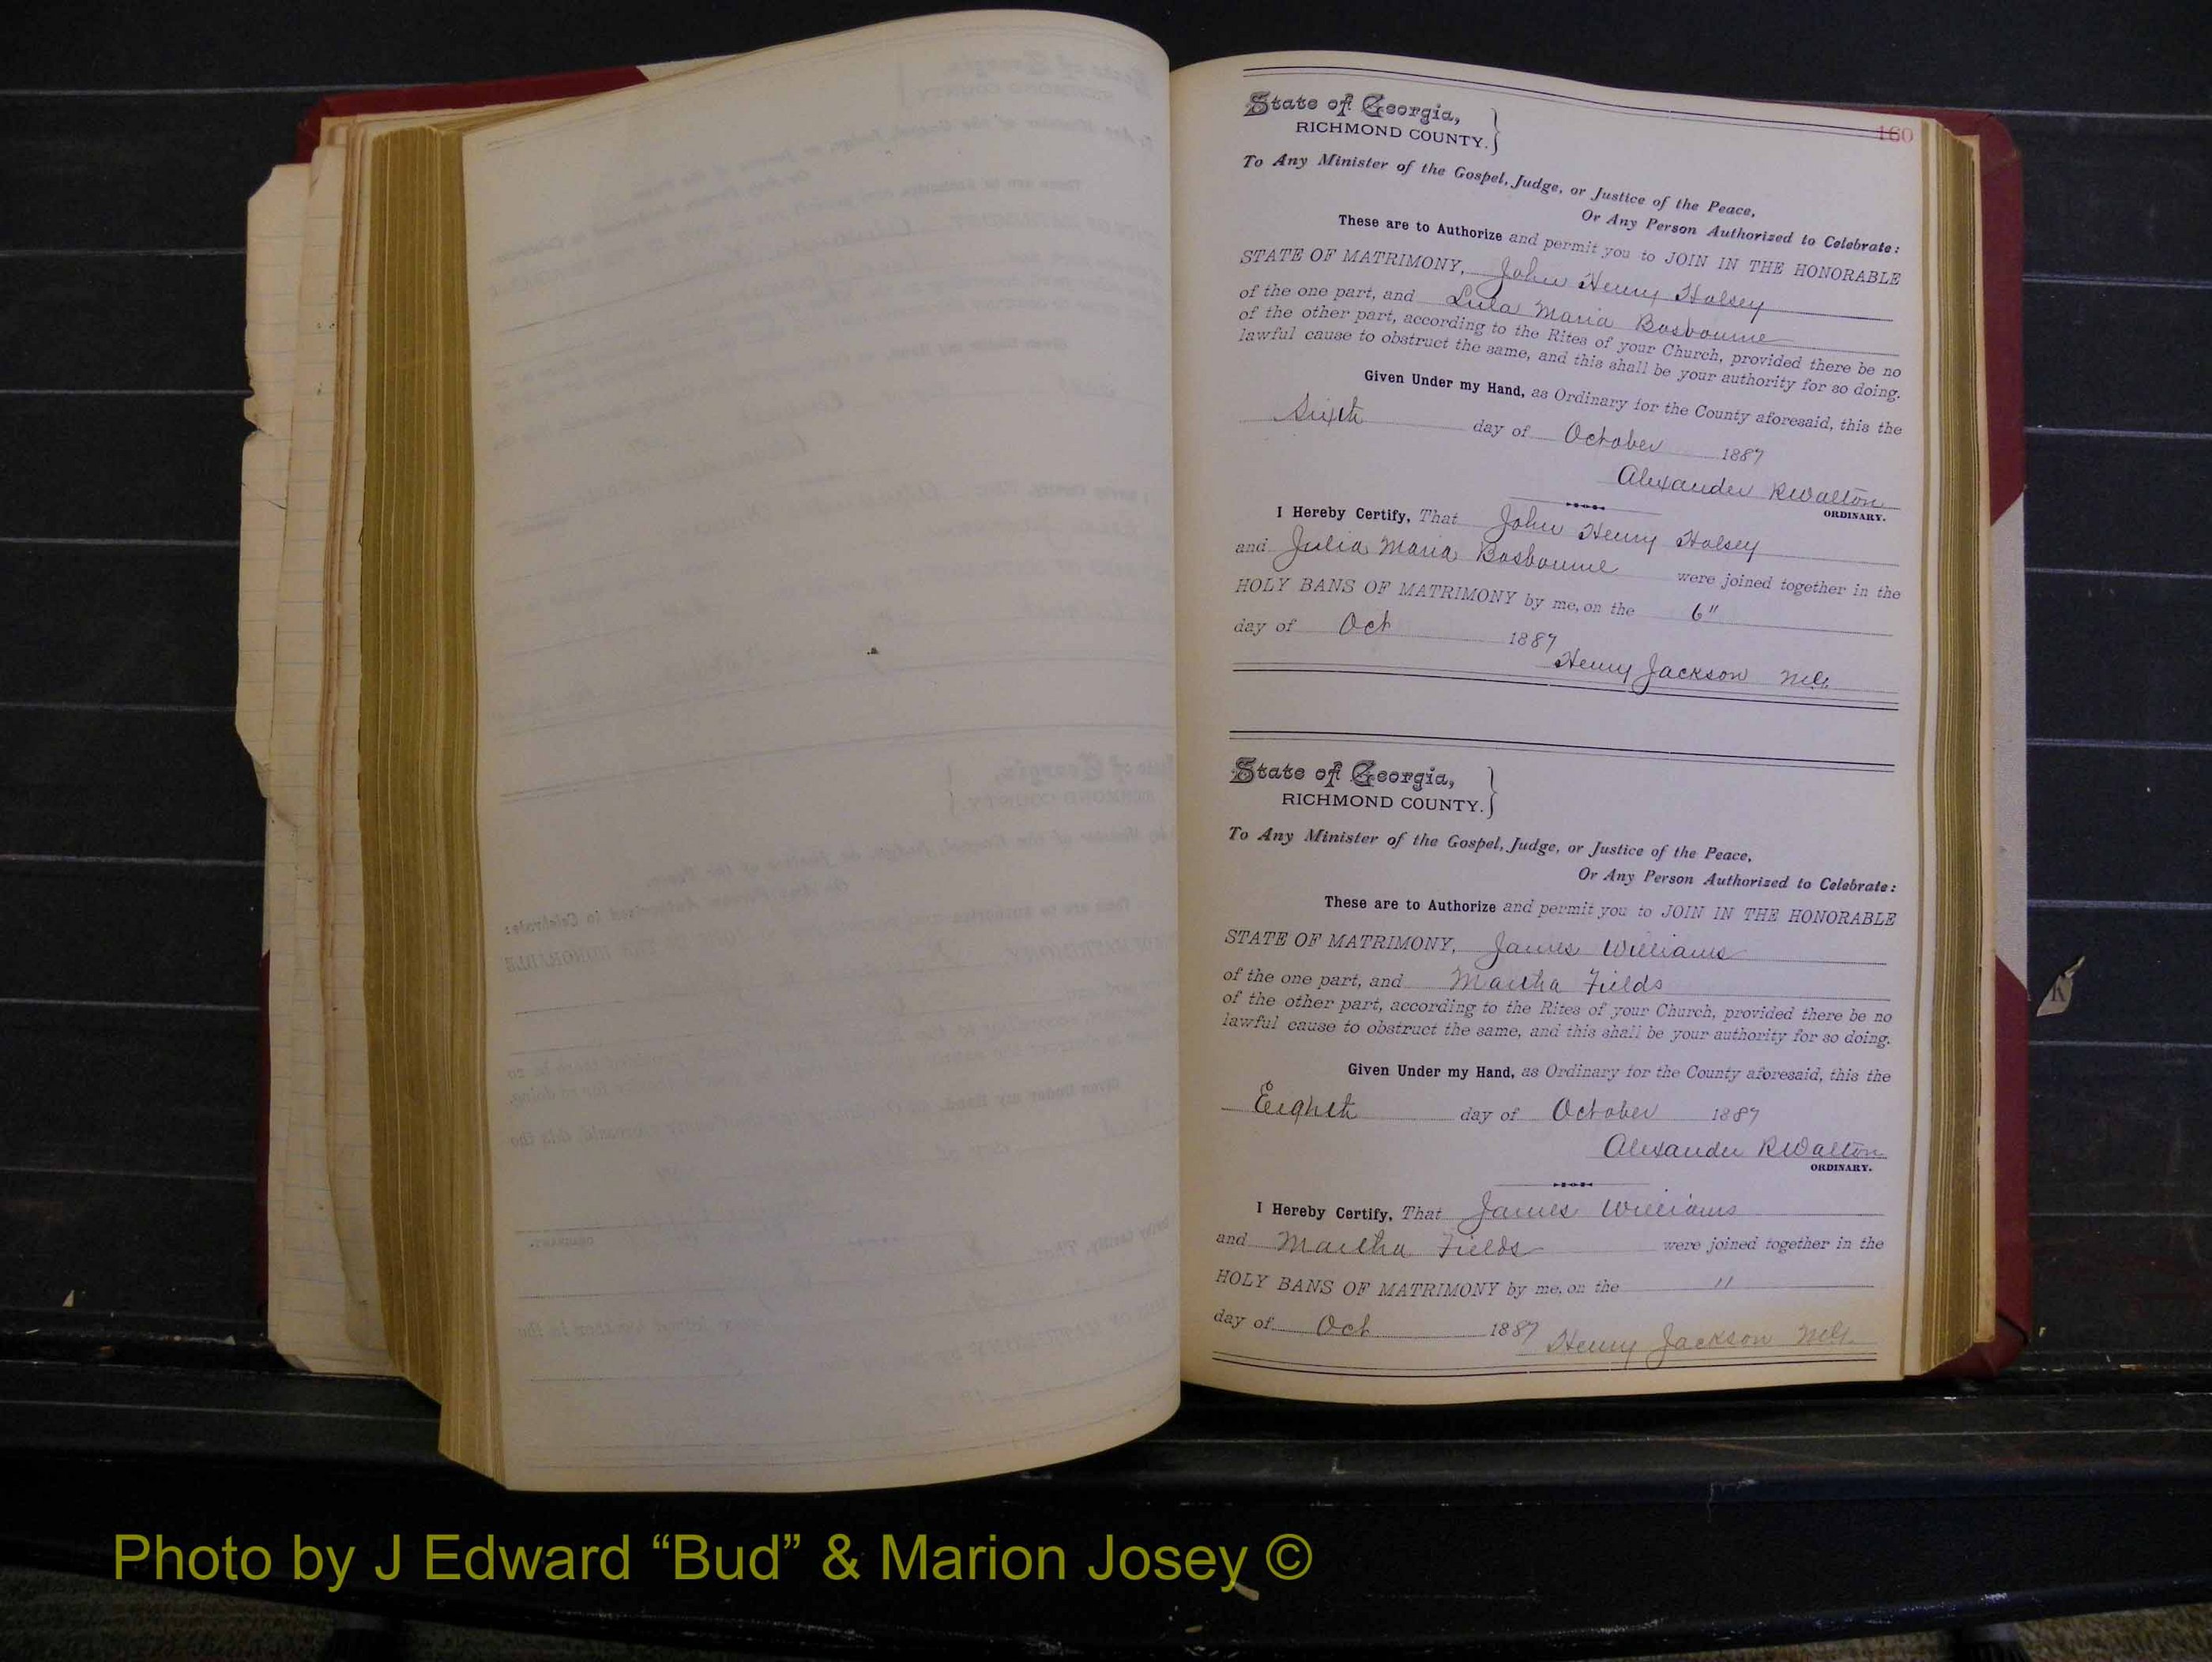 160
State of Georgia,
RICHMOND COUNTY.
To Any Minister of the Gospel, Judge, or Justice of the Peace,
Or Any Person Authorized to Celebrate:
These are to Authorize and permit you to JOIN IN THE HONORABLE
STATE OF MATRIMONY, John Henry Halsey
of the one part, and Lula Maria Bosbourne
of the other part, according to the Rites of your Church, provided there be no
lawful cause to obstruct the same, and this shall be your authority for so doing.
Given Under my Hand, as Ordinary for the County aforesaid, this the
Sixth day of October 1887
Alexander R Walton
ORDINARY.
I Hereby Certify, That John Henry Halsey
and Julia Maria Bosbourne were joined together in the
HOLY BANS OF MATRIMONY by me, on the 6"
day of Oct 1887
Henry Jackson MG
State of Georgia,
RICHMOND COUNTY.
To Any Minister of the Gospel, Judge, or Justice of the Peace,
Or Any Person Authorized to Celebrate:
These are to Authorize and permit you to JOIN IN THE HONORABLE
STATE OF MATRIMONY, James Williams
of the one part, and Martha Fields
of the other part, according to the Rites of your Church, provided there be no
lawful cause to obstruct the same, and this shall be your authority for so doing.
Given Under my Hand, as Ordinary for the County aforesaid, this the
Eighth day of October 1887
Alexander R Walton
ORDINARY.
I Hereby Certify, That James Williams
and Martha Fields were joined together in the
HOLY BANS OF MATRIMONY by me, on the "
day of Oct 1887 Henry Jackson MG
K
Photo by J Edward “Bud” & Marion Josey ©